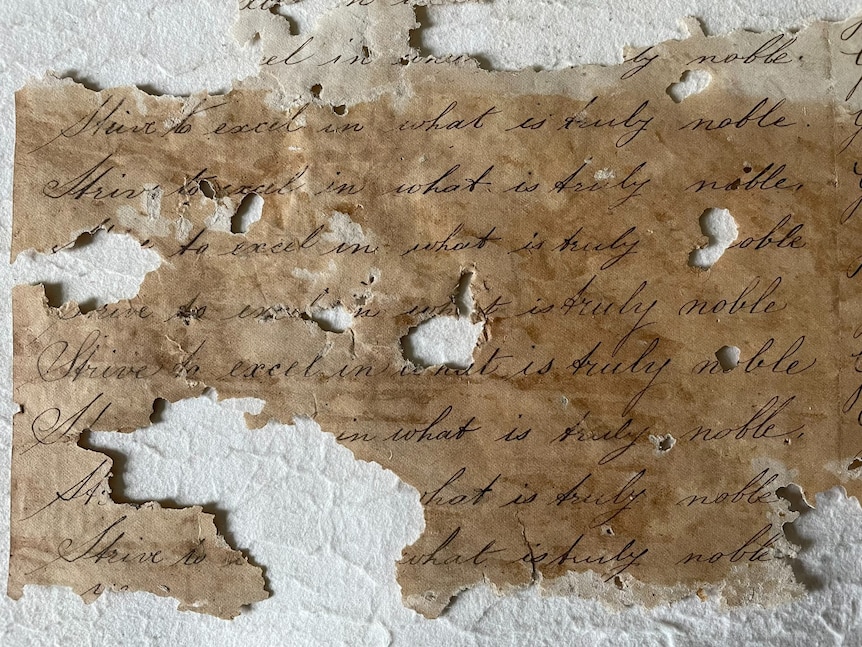 el in ly noble.
Strive to excel in what is truly noble.
Strive to excel in what is truly noble,
to excel in what is truly oble
Strive to excel in what is truly noble
Strive to excel in what is truly noble
S in what is truly noble,
St what is truly noble
Strive to what is truly noble